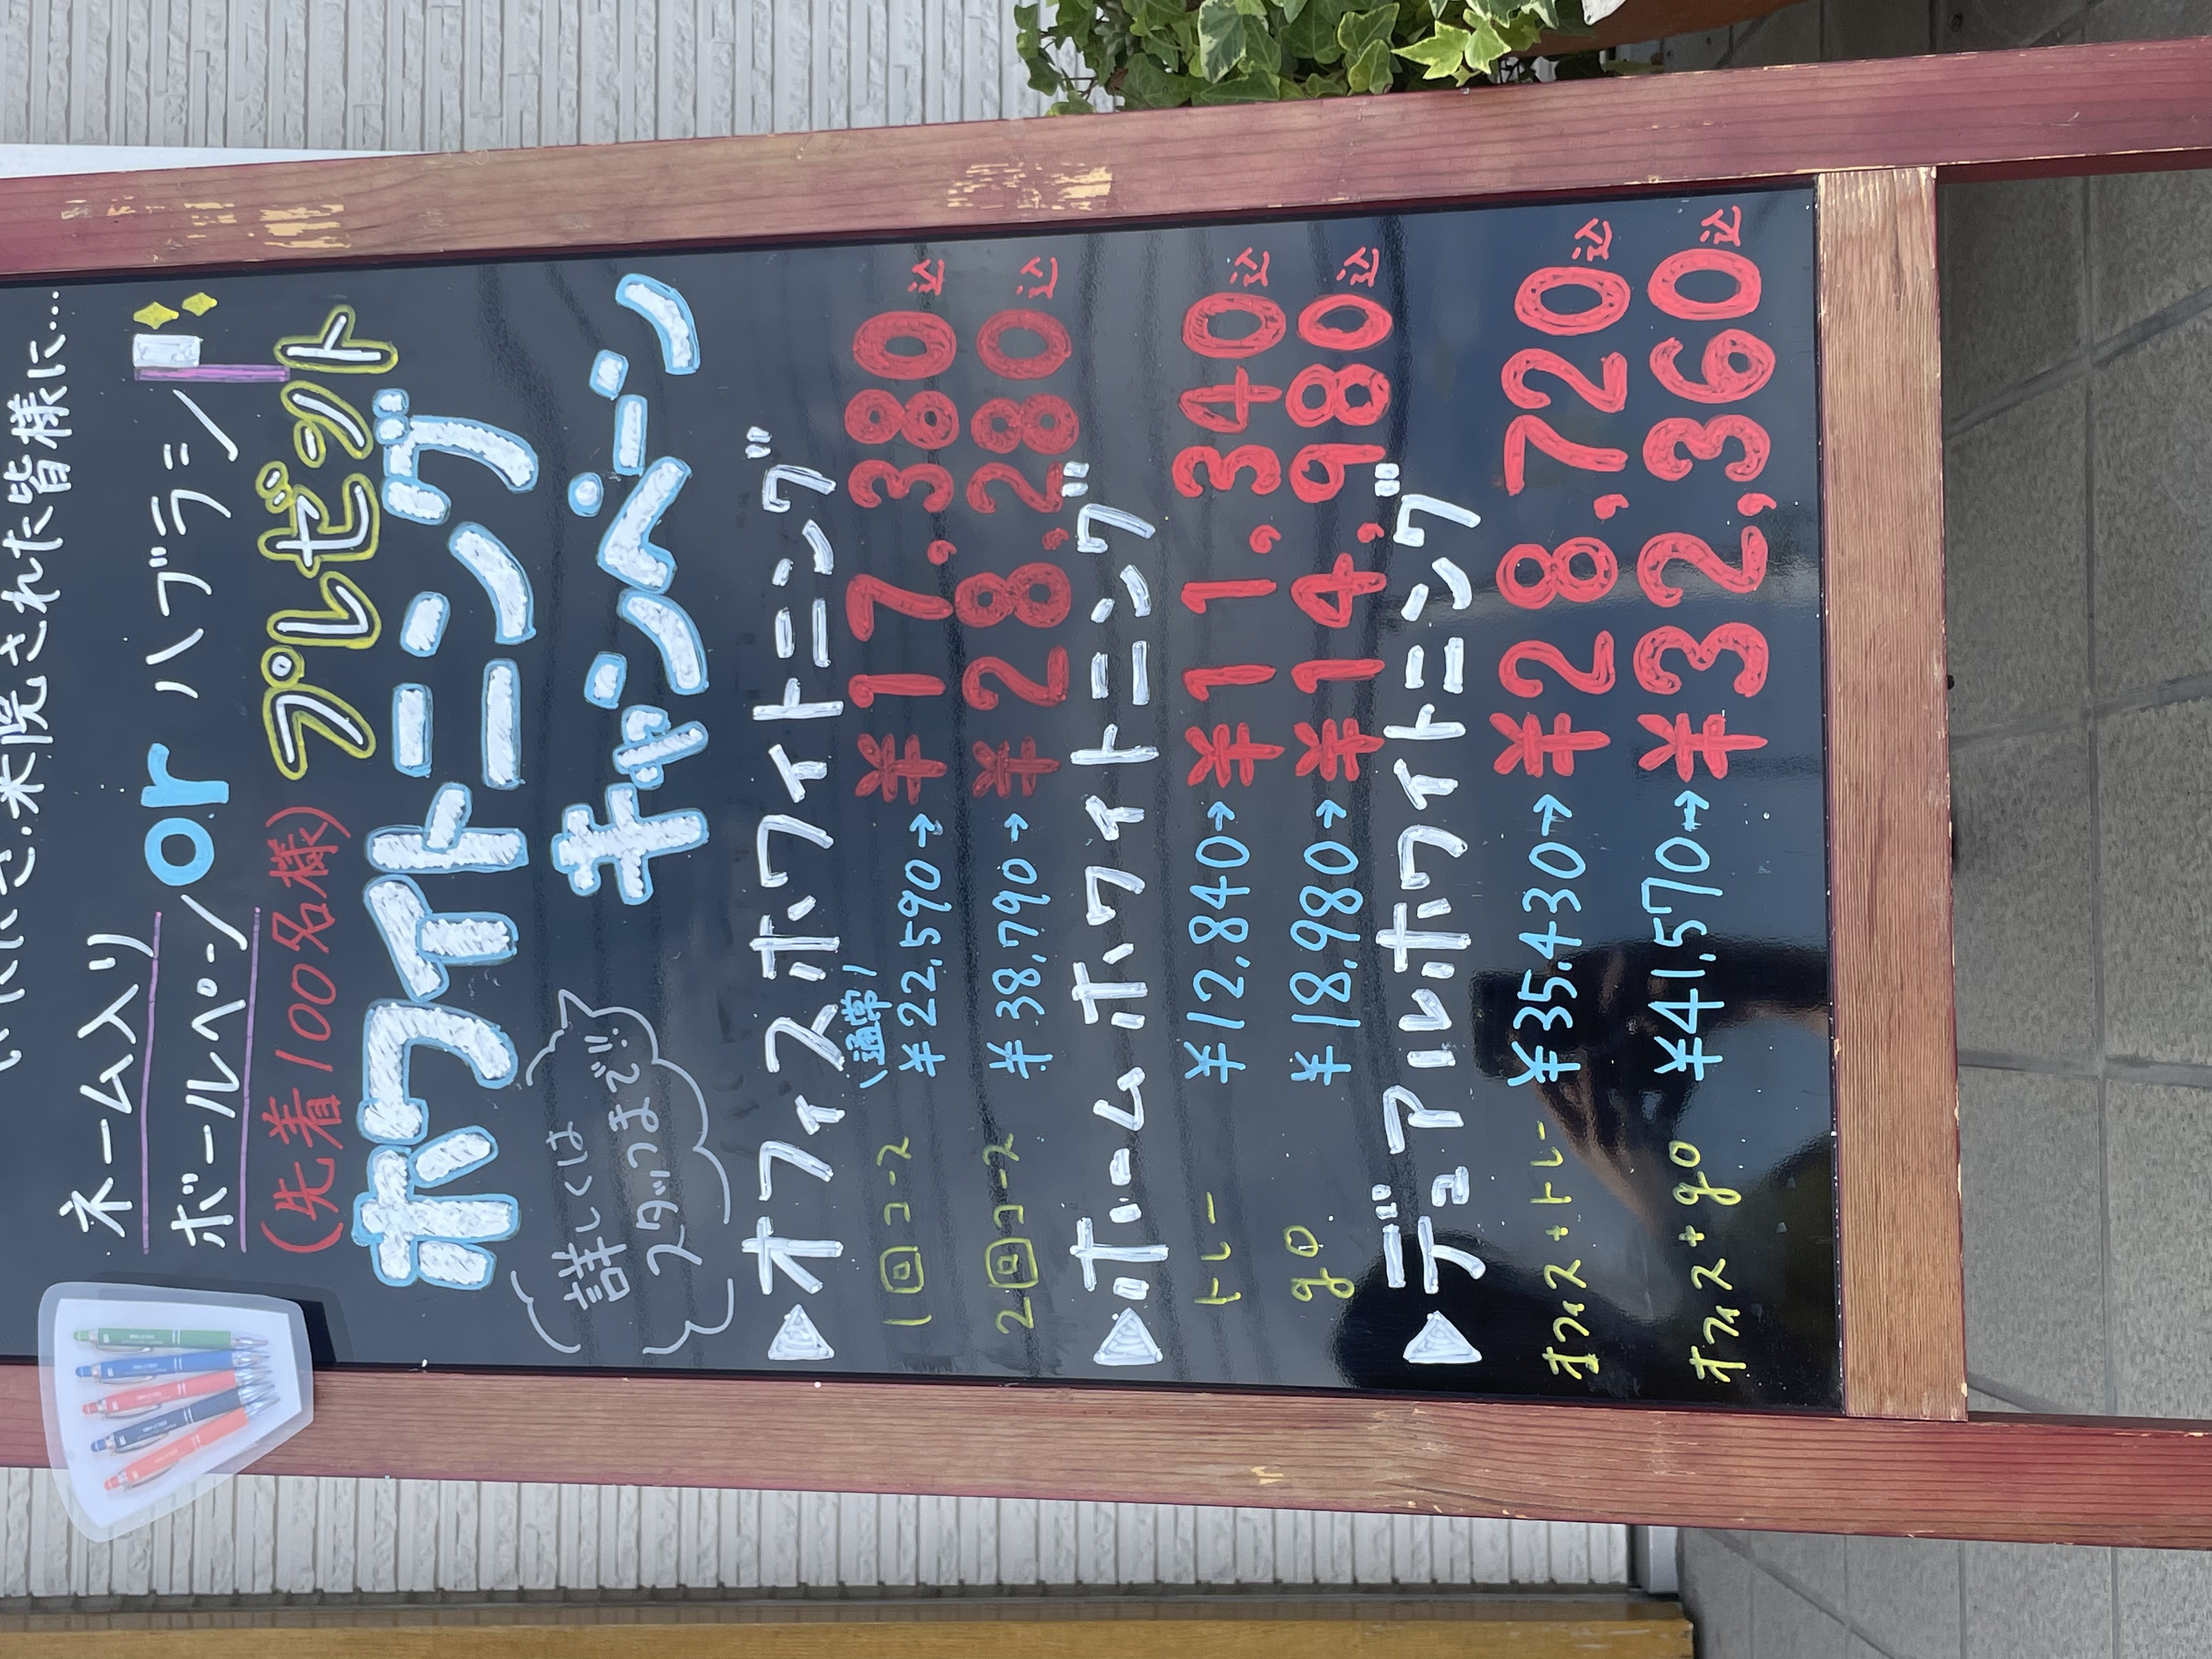 来院された皆様に...
ネーム入り
ボールペン or ハブラシ
(先着100名様) プレゼント
ホワイトニング
キャンペーン
詳しくは
スタッフまで
▷オフィスホワイトニング
\通常/
1回コース ¥22,590→ ¥17,380込
2回コース ¥38,790→ ¥28,280込
▷ホームホワイトニング
トレー ¥12,840→ ¥11,340込
go ¥18,980→ ¥14,980込
▷デュアルホワイトニング
オフィス+トレー ¥35,430→ ¥28,720込
オフィス+go ¥41,570→ ¥32,360込